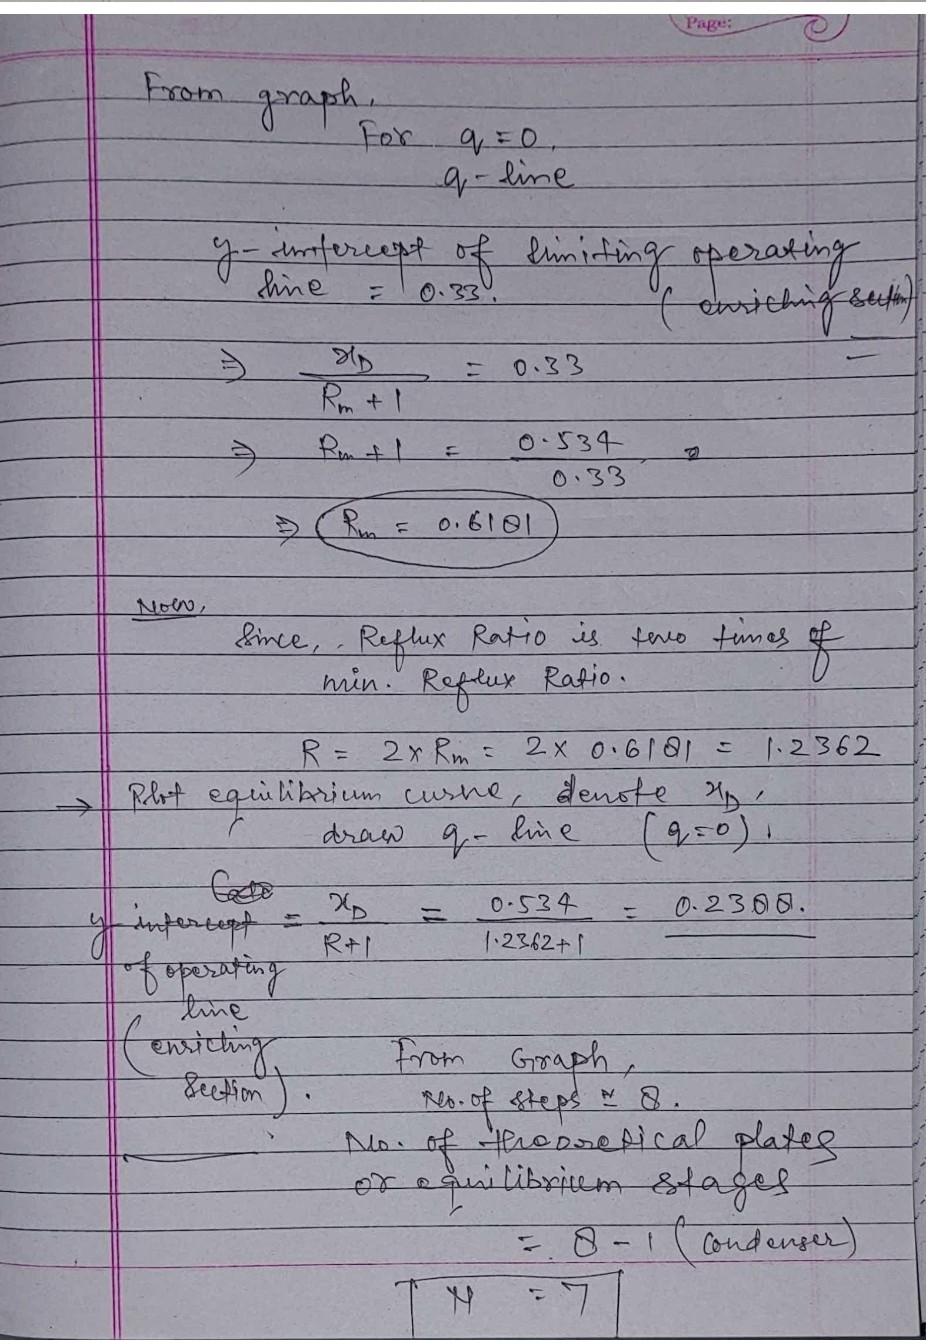 Page:
From graph,
For q = 0,
q - line
y - intercept of limiting operating
line = 0.33. (enriching section)
⇒ xD / (Rm + 1) = 0.33
⇒ Rm + 1 = 0.534 / 0.33
⇒ Rm = 0.6181
Now,
Since, Reflux Ratio is two times of
min. Reflux Ratio.
R = 2 x Rm = 2 x 0.6181 = 1.2362
→ Plot equilibrium curve, denote xD,
draw q - line (q = 0),
y intercept = xD / (R+1) = 0.534 / (1.2362+1) = 0.2388.
of operating
line
(enriching
Section).
From Graph,
No. of steps ≈ 8.
No. of theoretical plates
or equilibrium stages
= 8 - 1 (Condenser)
N = 7